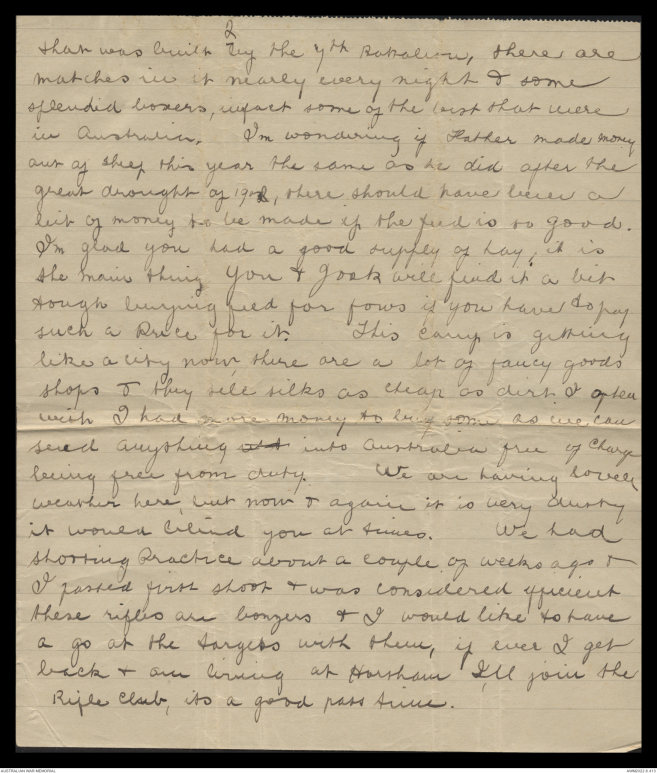 2
that was built by the 7th Batalion, there are
matches in it nearly every night & some
splendid boxers, infact some of the best that were
in Australia. I'm wondering if Father made money
out of sheep this year the same as he did after the
great drought of 1902, there should have been a
bit of money to be made if the feed is so good.
I'm glad you had a good supply of hay, it is
the main thing You & Jack will find it a bit
tough buying feed for fows if you have to pay
such a Price for it. This camp is getting
like a city now, there are a lot of fancy goods
shops & they sell silks as cheap as dirt. I often
wish I had more money to buy some as we can
send anything into Australia free of Charge
being free from duty. We are having lovely
weather here, but now & again it is very dusty
it would blind you at times. We had
shooting Practice about a couple of weeks ago &
I passed first shoot & was considered efficient
these rifles are bonzers & I would like to have
a go at the targets with them, if ever I get
back & am living at Horsham I'll join the
Rifle Club, its a good pass time.
AUSTRALIAN WAR MEMORIAL